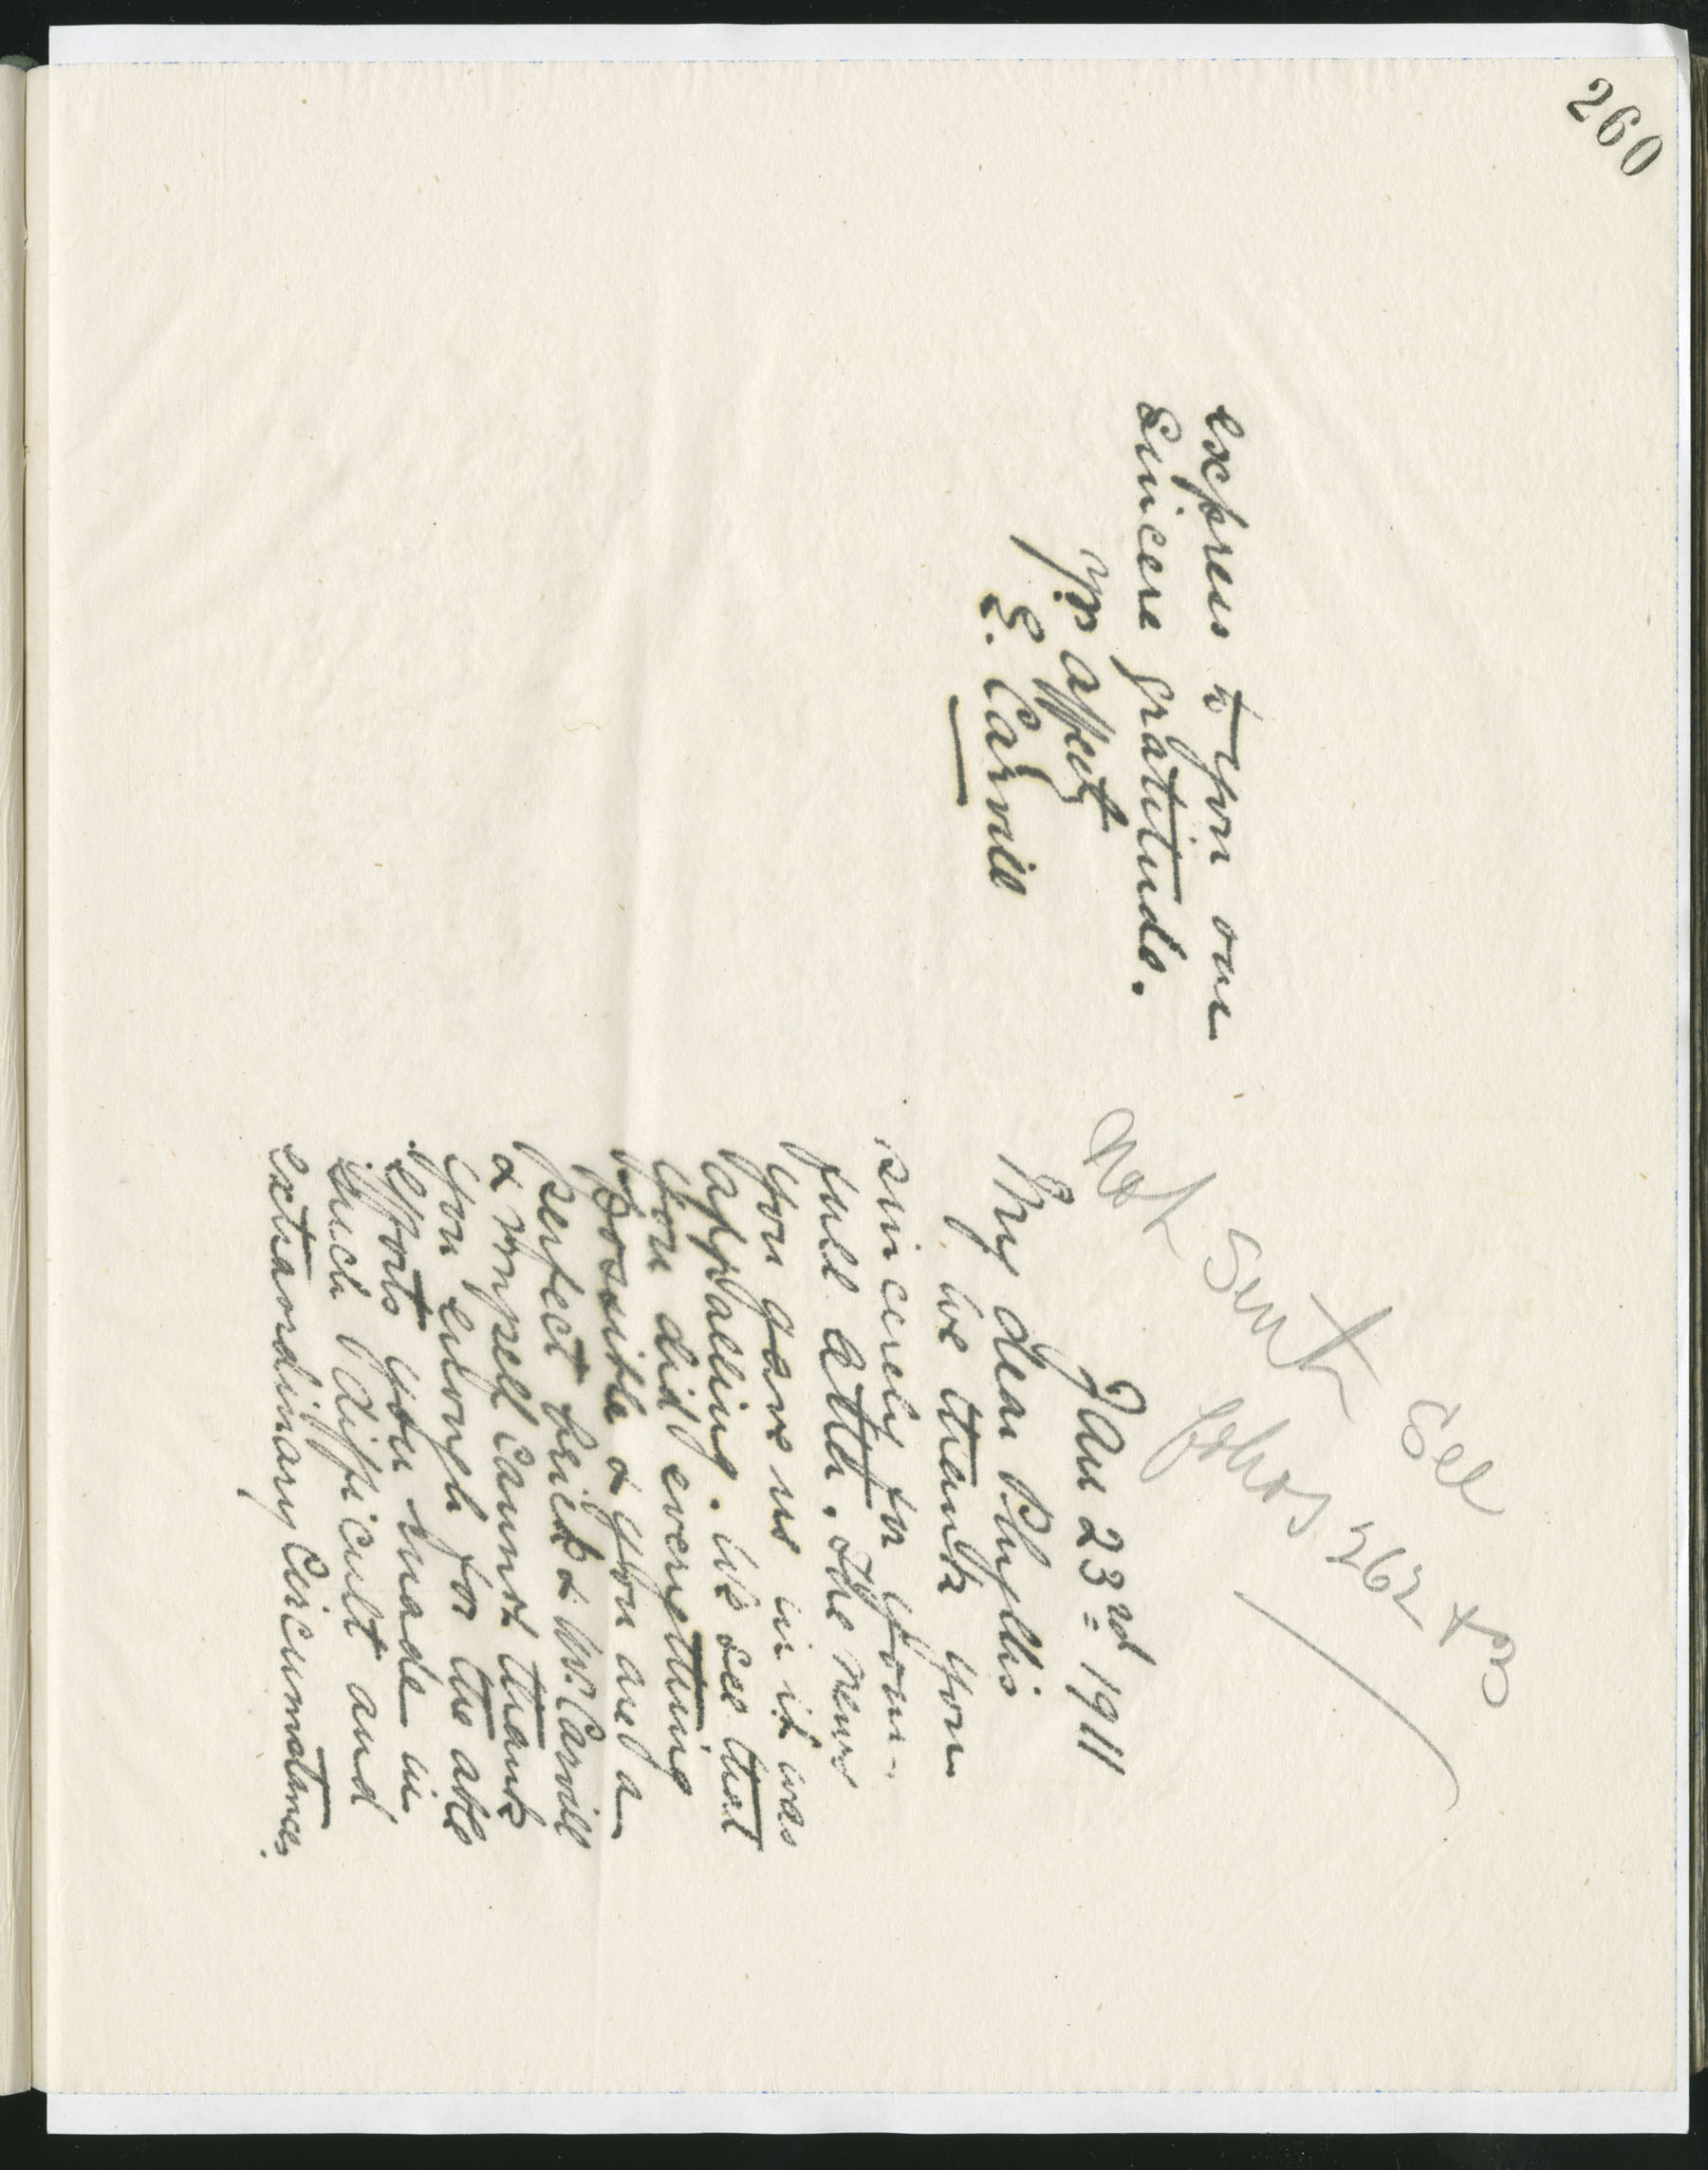 260
Not Sent See
folios 262 & 3
Jan 23rd 1911
My dear Phyllis
We thank you
sincerely for your
full letter. The news
you gave us in it was
appalling. We see that
you did everything
possible & you are a
perfect brick & Mr. Carvill
& myself cannot thank
you enough for the able
efforts you made in
such difficult and
extraordinary circumstances.
express to you our
sincere gratitude.
Yrs affect
E. Carvill